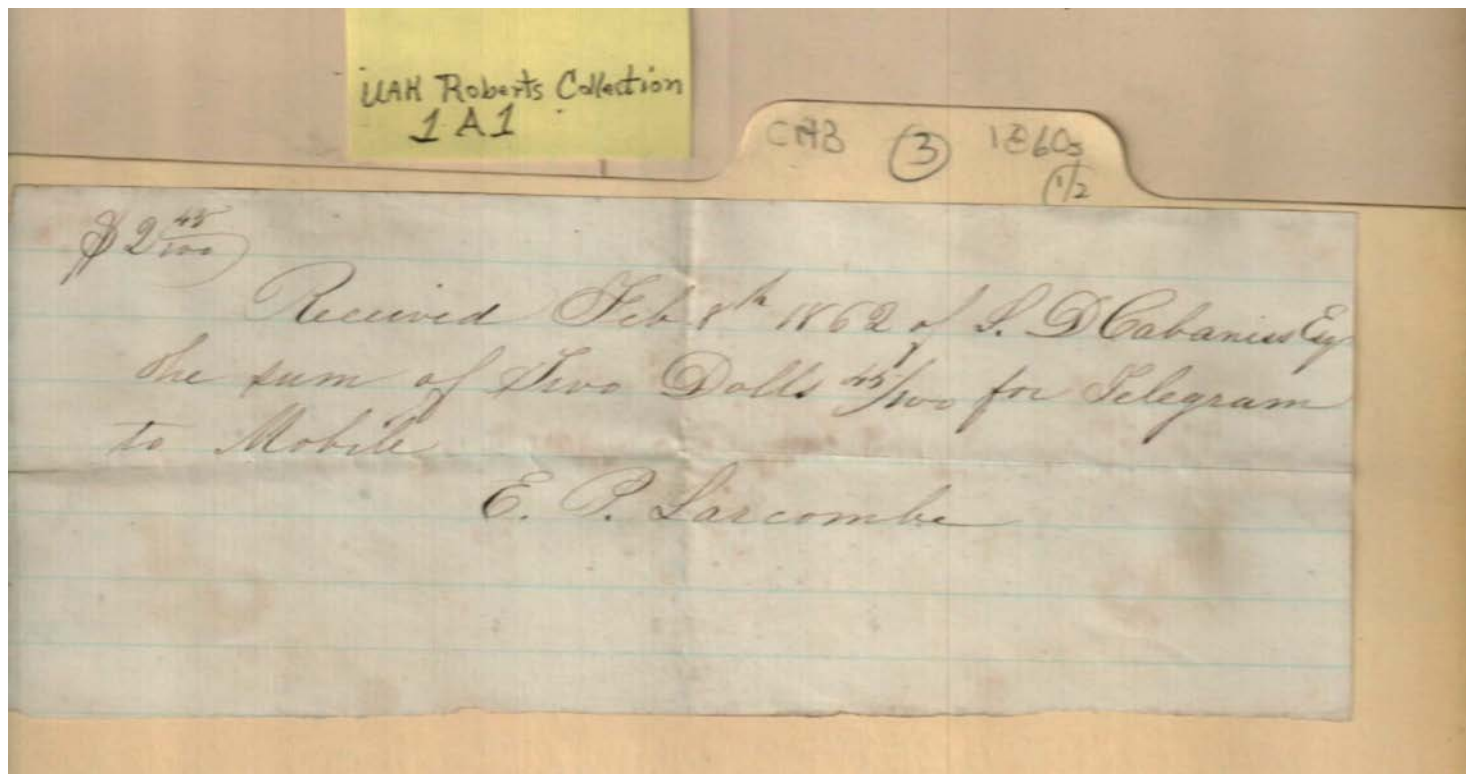 UAH Roberts Collection
1A1
CAB 3 1860s
1/2
$2 45/100
Received Feb 8th 1862 of S. D Cabaniss Esq
the sum of Two Dolls 45/100 for Telegram
to Mobile
E. P. Larcombe